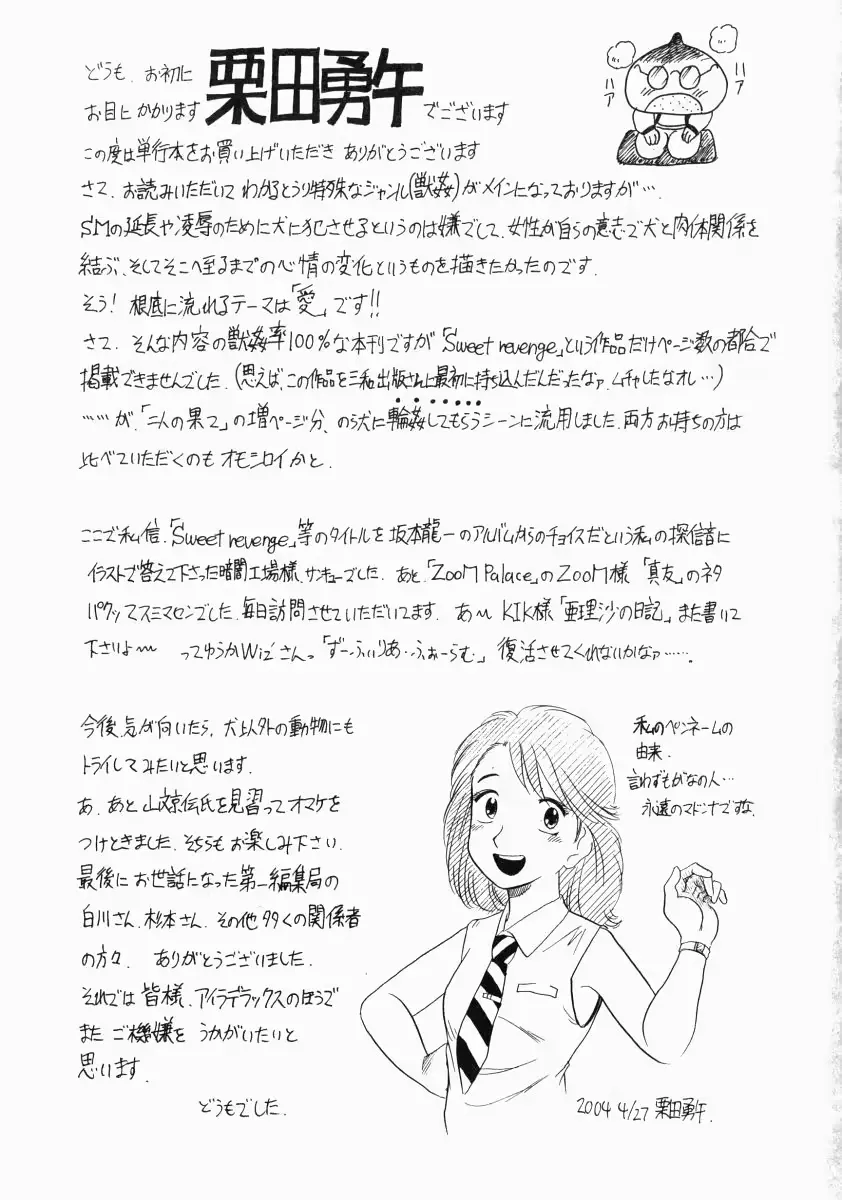 どうも、お初に
お目にかかります 栗田勇午 でございます
ハァ
ハァ
この度は単行本をお買い上げいただき ありがとうございます
さて、お読みいただいて わかるとうり特殊なジャンル(獣姦)がメインになっておりますが…。
SMの延長や凌辱のために犬に犯させるというのは嫌でして、女性が自らの意志で犬と肉体関係を
結ぶ、そしてそこへ至るまでの心情の変化というものを描きたかったのです。
そう! 根底に流れるテーマは「愛」です!!
さて、そんな内容の獣姦率100%な本刊ですが「Sweet revenge」という作品だけページ数の都合で
掲載できませんでした。(思えば、この作品を三和出版さんに最初に持ち込んだんだったなァ、ムチャしたなオレ…)
……が、「二人の果て」の増ページ分、のら犬に輪姦してもらうシーンに流用しました。両方お持ちの方は
比べていただくのもオモシロイかと。
ここで私信、「Sweet revenge」等のタイトルを坂本龍一のアルバムからのチョイスだという私の探信音に
イラストで答えて下さった暗闇工場様、サンキューでした。あと、「ZooM Palace」のZooM様「真友」のネタ
パクッてスミマセンでした、毎日訪問させていただいてます。あ〜 KIK様「亜理沙の日記」また書いて
下さいよ〜 ってゆうかWiz'さんっ「ずーふぃりあ・ふぉーらむ」復活させてくれないかなァ……。
今後、気が向いたら、犬以外の動物にも
トライしてみたいと思います。
あ、あと山文京伝氏を見習ってオマケを
つけときました。そちらもお楽しみ下さい。
最後にお世話になった第一編集局の
白川さん、杉本さん、その他多くの関係者
の方々、ありがとうございました。
それでは皆様、アイラデラックスのほうで
また ご機嫌を うかがいたいと
思います。
どうもでした。
私のペンネームの
由来、
言わずもがなの人…
永遠のマドンナですな
2004 4/27 栗田勇午.